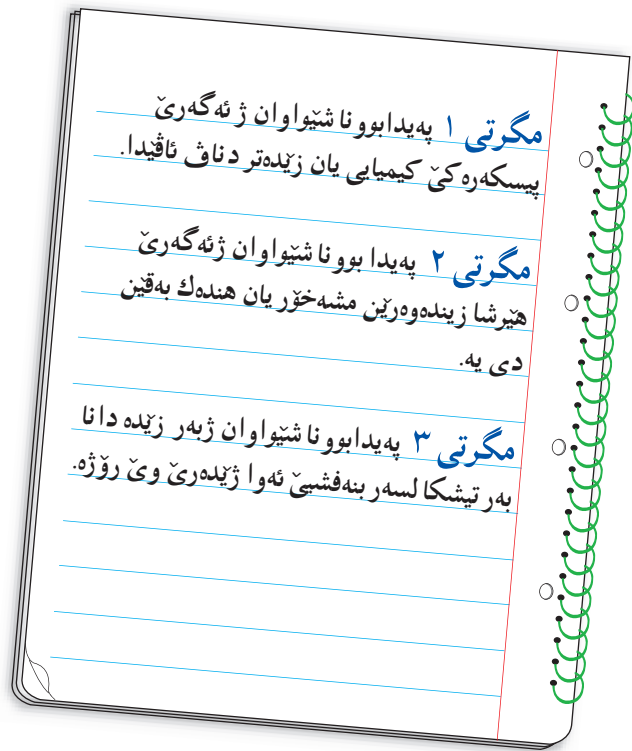 مگرتی ١ پەیدابوونا شێواوان ژ ئەگەرێ
پیسکەرەکێ کیمیایی یان زێدەتر د ناڤ ئاڤێدا.
مگرتی ٢ پەیدا بوونا شێواوان ژئەگەرێ
هێرشا زیندەوەرێن مشەخۆر یان هندەك بەقێن
دی یە.
مگرتی ٣ پەیدابوونا شێواوان ژبەر زێدە دانا
بەر تیشکا لسەر بنەفشیێ ئەوا ژێدەرێ وێ رۆژە.